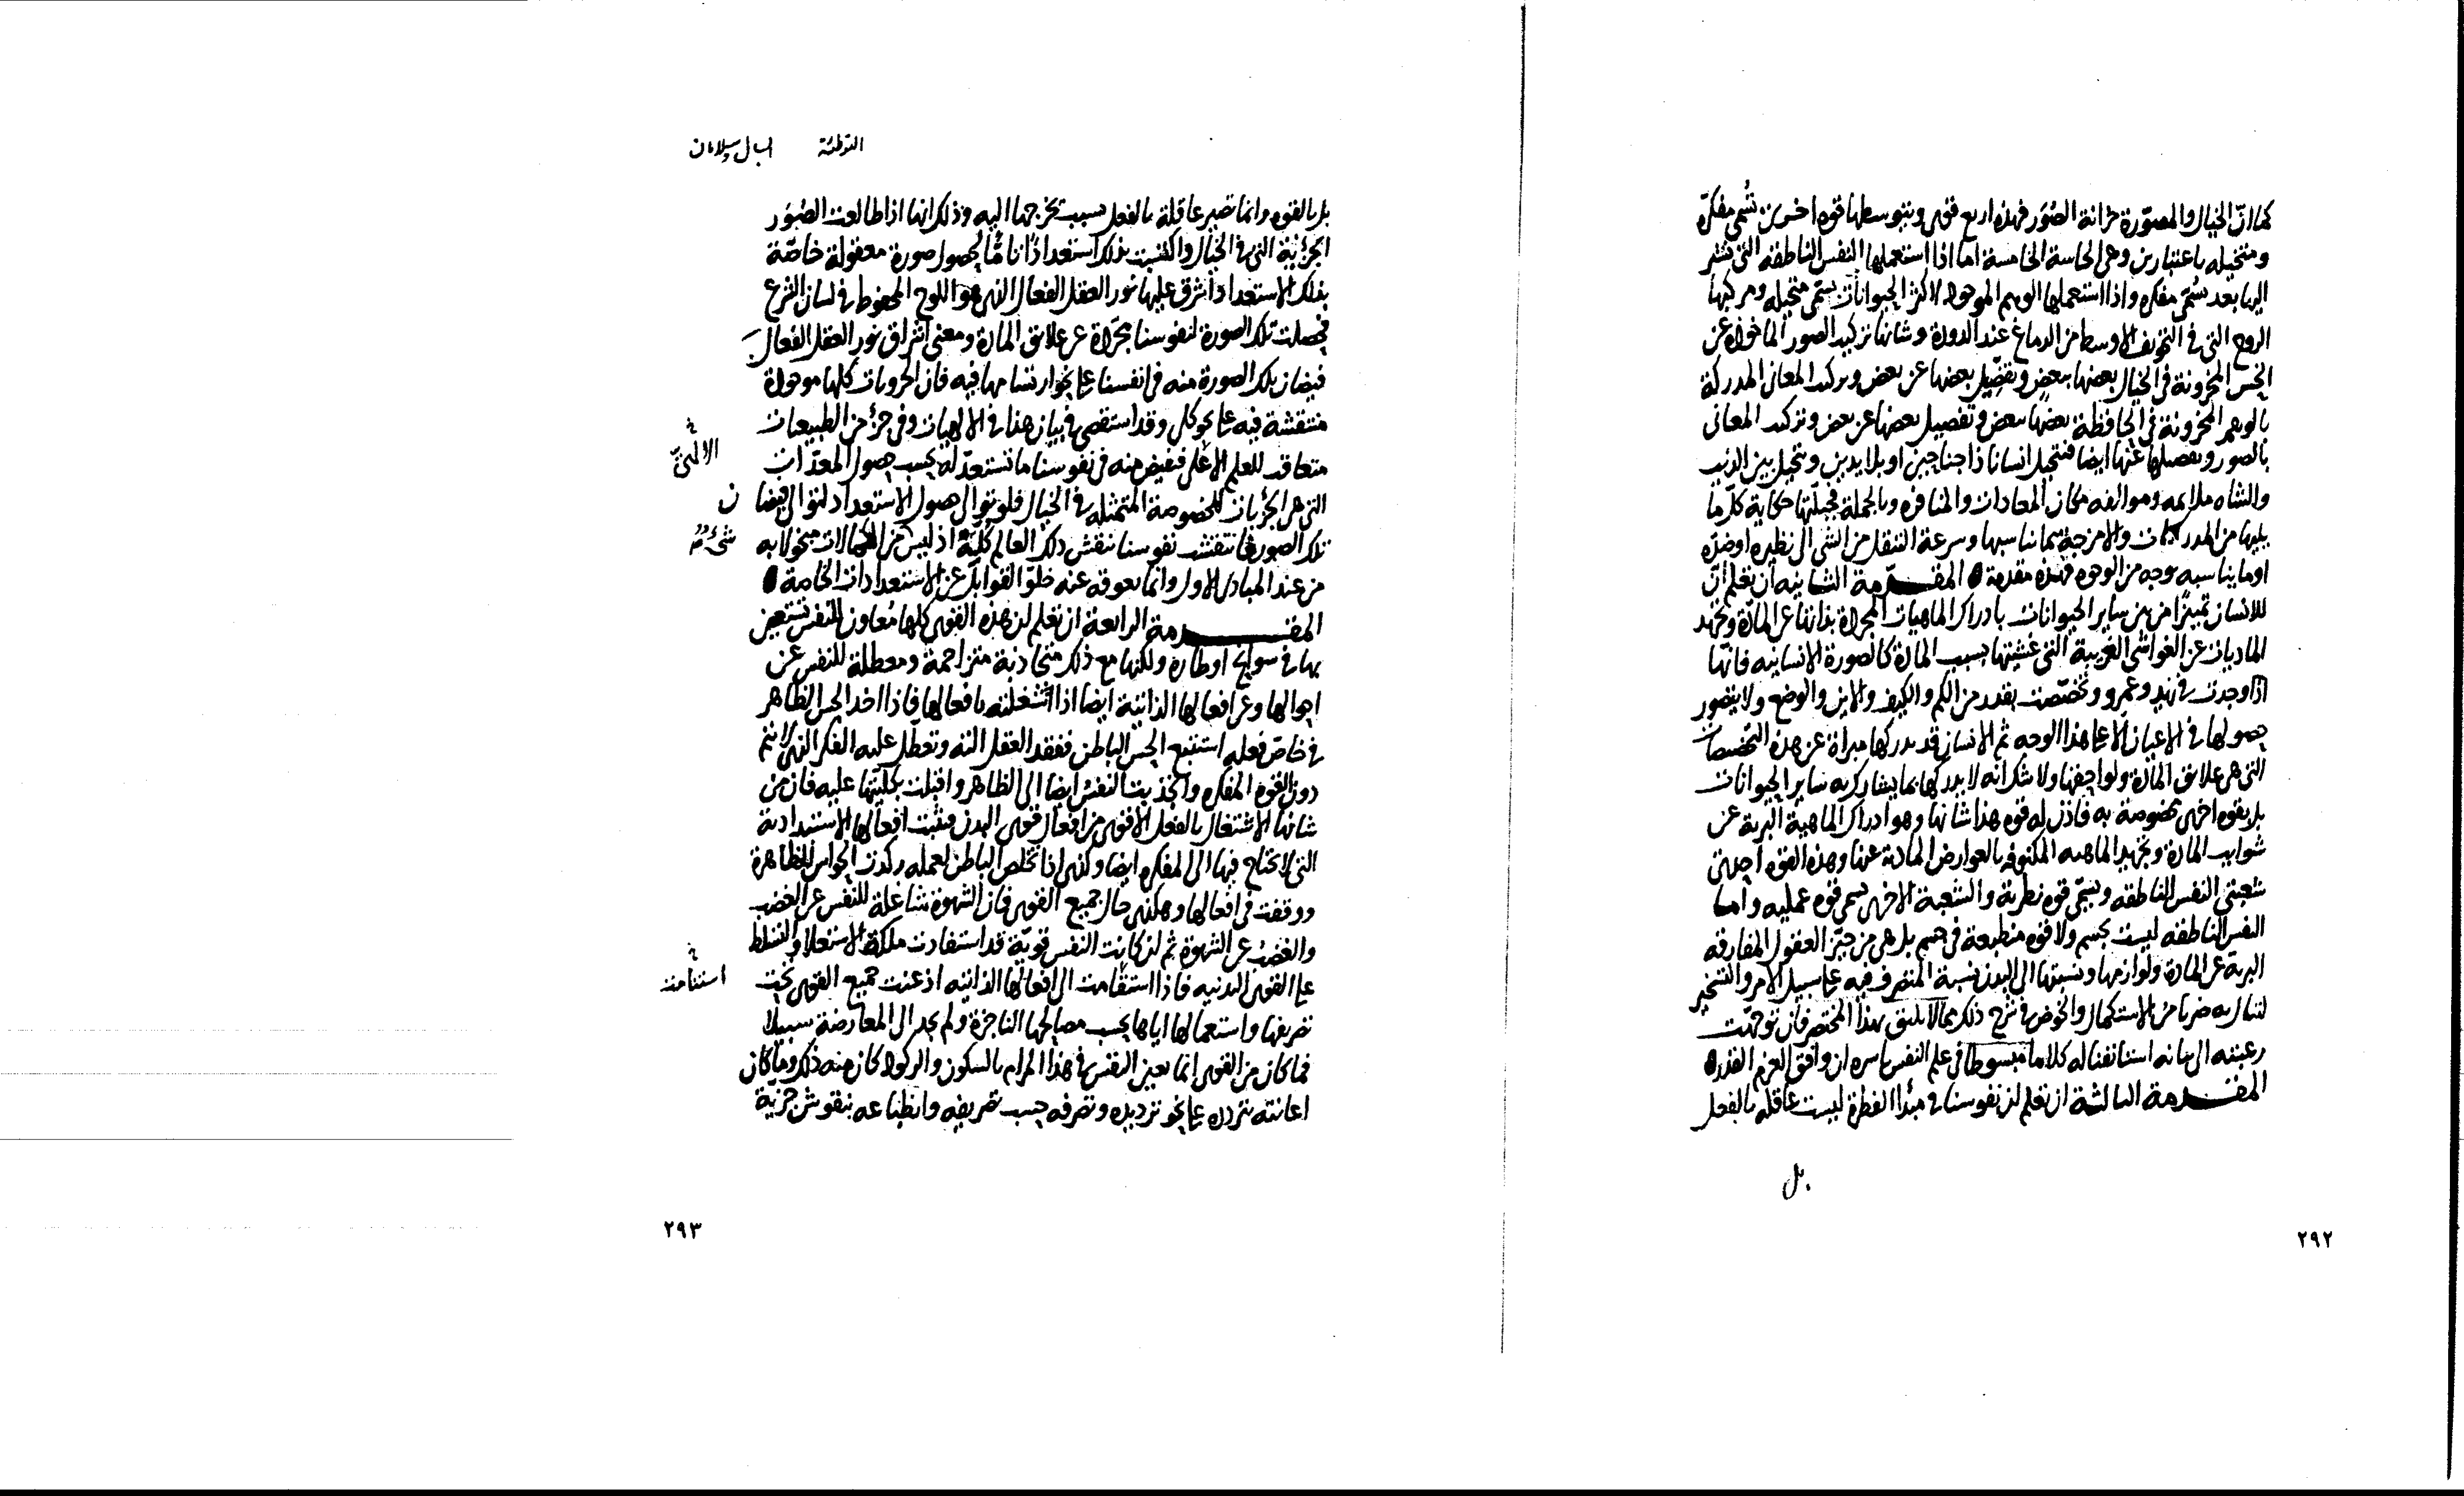 كما انّ الخيال والمصوّرة خزانة الصُوَر فهذه اربع قوى وبتوسطها قوه اخرى تُسمى مفكرّه
ومتخيله باعتبارين وهى الحاسة الخامسة اما اذا استعملها النفس الناطقه التى
اليها بعد تسُمّى مفكره واذا استعملها الوهم الموجود لاكثر الحيوانات تسمّى متخيله ومركبها
الروح التى فى التجويف الاوسط من الدماغ عند الدودة وشانها تركيب الصور الماخوذه عن
الحس المخزونة فى الخيال بعضها ببعض وتفصيل بعضها عن بعض وتركيب المعانى المدركة
بالوهم المخزونة فى الحافظة بعضها ببعض وتفصيل بعضها عن بعض وتركيب المعانى
بالصور وتفصيلها عنها ايضا فتتخيل انسانا ذا جناحين او بلا يدين وتتخيل بين الذيب
والشاه ملايمه وموالفه مكان المعادات والمنافره وبالجملة حكاية كلّ ما
يليها من المدركات والامزجة بما يناسبها وسرعة التنقل من الشى الى نظيره او ضدّه
او ما يناسبه بوجه من الوجوه فهذه مقدمة المقدّمة الثانيه ان تعلم انّ
للانسان تميّزًا من بين ساير الحيوانات بادراك الماهيات المجرادة بذاتها عن المادّة وتجريد
الماديات عن الغواشى الغريبة التى غشيتها بسبب المادّة كالصورة الانسانيه فانّها
اذا وجدت فى زيد وعمرو وتخصّصت بقدر من الكم والكيف والاين والوضع ولا يتصور
حصولها فى الاعيان الّا على هذا الوجه ثم الانسان قد يدركها مبراة عن هذه التخصيصات
التى هى علايق المادّة ولواحقها ولا شك انه لا يدركها بما يشاركه به ساير الحيوانات
بل بقوه اخرى مخصوصة به فاذن له قوه هذا شانها وهو ادراك الماهية البرية عن
شوايب المادّة وتجريد الماهيه المكنوفه بالعوارض المادية عنها وهذه القوه احدى
شعبتى النفس الناطقه وتسمّى قوه نظريّة والشعبة الاخرى تسمى قوه عمليه وامـا
النفس الناطقه ليست بجسم ولا قوه منطبعة فى جسم بل هى من حيّز العقول المفارقه
البرية عن المادّة ولوازمها ونسبتها الى البدن نسبة المتصرف فيه على سبيل الامر والتسخير
لتنال به ضربا من الاستكمال والخوض فى شرح ذلك مما لا يليق بهذا المختصر فان توجّهت
رغبته الى بيانه استانفنا له كلاما مبسوطا فى علم النفس باسره ان وافق العزم القدر
المقدمة الثالثة ان تعلم ان نفوسنا فى مبدأ الفطرة ليست عاقله بالفعل
بل
٢٩٢
التوطئة ابسال وسلامان
بل بالقوه وانما تصير عاقلة بالفعل بسبب مخرجها اليه وذلك انها اذا طالعت الصُوَر
الجزئية التى فى الخيال واكتسبت بذلك استعدادًا تامًّا لحصول صورة معقولة خاصّة
بذلك الاستعداد اشرق عليها نور العقل الفعال الذى هو اللوح المحفوظ فى لسان الشرع
فحصلت تلك الصورة لنفوسنا مجرّدة عن علايق المادّة ومعنى اشراق نور العقل الفعال
فيضان تلك الصورة منه فى انفسنا على نحو ارتسامها فيه فان الجزويات كلها موجودة
منتقشة فيه على نحو كلى وقد استقصى فى بيان هذا فى الالهيات وفى جزء من الطبيعيات
متعلق للعلم الاعلى فتفيض منه فى نفوسنا ما تستعدّ له بحسب حصول المعدّات
الالهىّ
التى هى الجزيات المخصوصة المتمثله فى الخيال فلو توالى حصول الاستعداد لتوالى فيضان
تلك الصور فانتقشت نفوسنا بنقش ذلك العالم كليّة اذ ليس من الكمالات مبخولا به
شىء
من عند المبادى الاول وانما يعوقه عنه خلوّ القوابل عن الاستعدادات الخاصة
المقدمة الرابعة ان تعلم ان هذه القوى كلها مُعاون للنفس تستعين
بها فى سوانح اوطاره ولكنها مع ذلك متجاذبة متزاحمة ومعطلة للنفس عن
احوالها وعن افعالها الذاتيّة ايضا اذا اشغلته بافعالها فاذا اخذ الحس الظاهر
فى خاصّ فعله استتبع الحس الباطن ففقد العقل الته وتعطل عليه الفكر الذى لا يتم
دون القوه المفكره وانجذبت النفس ايضا الى الظاهر واقبلت بكليّتها عليه فان من
شانها الاشتغال بالفعل الاقوى من افعال قوى البدن افعالها الاستبدادية
التى لا تحتاج فيها الى المفكره ايضا وكذى اذا تخلص الباطن لعمله ركدت الحواس الظاهرة
ووقفت فى افعالها وهكذى حال جميع القوى فان الشهوة شاغلة للنفس عن الغضب
والغضبُ عن الشهوة ثم ان كانت النفس قويّة قد استفادت ملكة الاستعلاء والتسلط
على القوى البدنيه فاذا استقامت الى افعالها الذاتيه اذعنت جميع القوى تحت
استنامت
تصريفها واستعمالها اياها بحسب مصالحها الناجزة ولم يجد الى المعارضة سبيلا
فما كان من القوى انما يعين النفس فى هذا المرام بالسكون والركود كان منه ذلك وما كان
اعانته بتردده على نحو ترديده وتصرفه حسب تصريفه وانطباعه بنقوش جزئية
٢٩٣